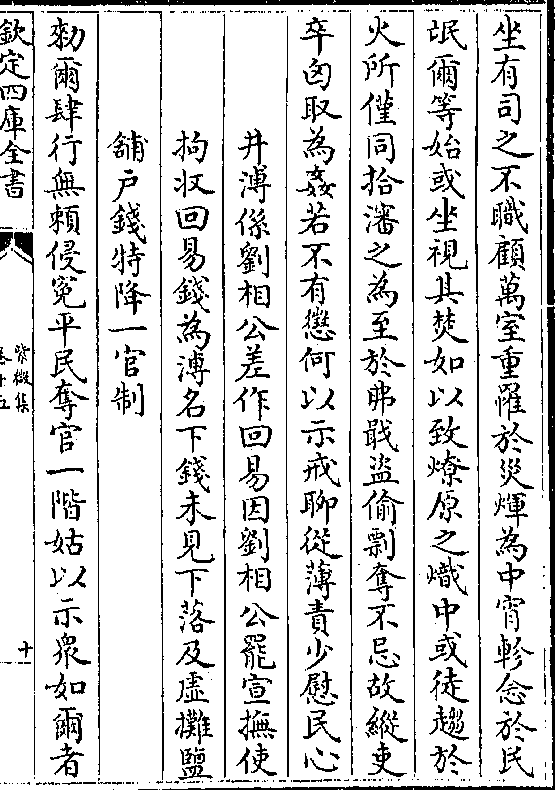 坐有司之不職顧萬室重罹於災煇為中宵軫念於民
氓爾等始或坐視其焚如以致燎原之熾中或徒趨於
火所僅同拾瀋之為至於弗戢盜偷剽奪不忌故縱吏
卒囪取為姦若不有懲何以示戒聊從薄責少慰民心
井漙係劉相公差作回易因劉相公罷宣撫使
拘收回易錢為漙名下錢未見下落及虛攤鹽
舖戶錢特降一官制
勑爾肆行無賴侵寃平民奪官一階姑以示衆如爾者
欽定四庫全書
紫微集
卷十五
十